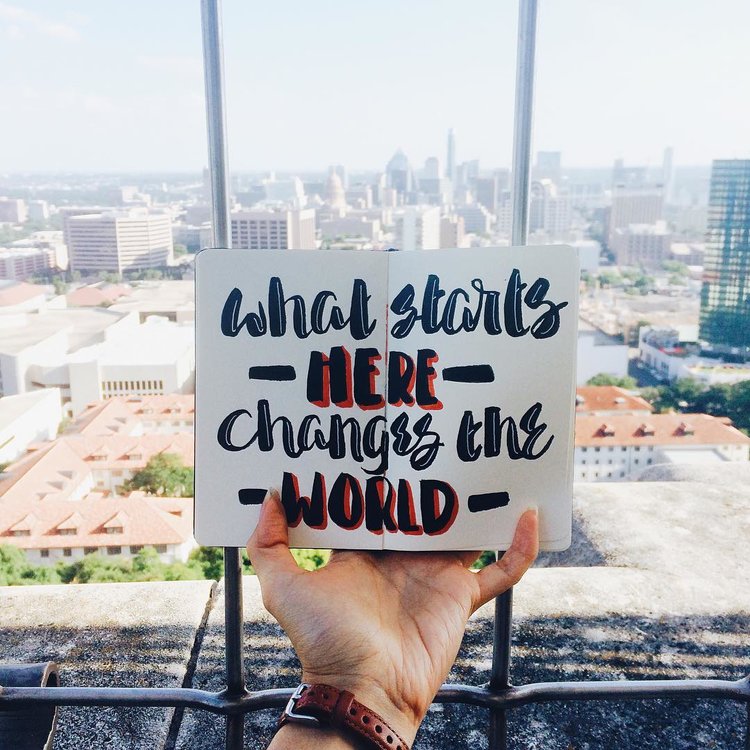 what starts
- HERE -
changes the
- WORLD -